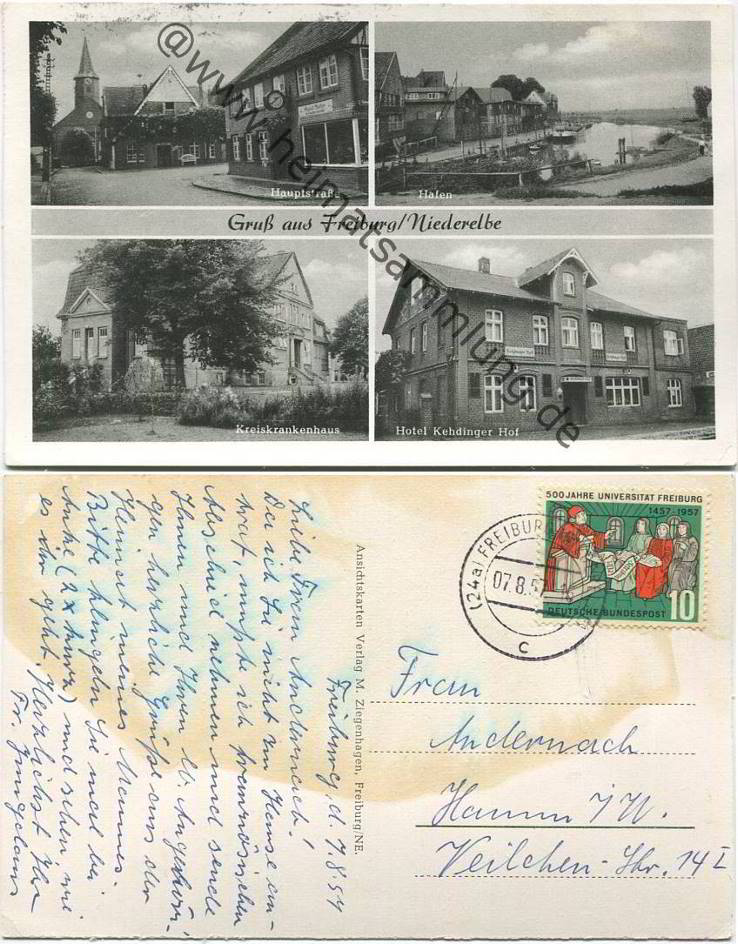 @www.heimatsammlung.de
Hauptstraße
Hafen
Gruß aus Freiburg/Niederelbe
Kreiskrankenhaus
Hotel Kehdinger Hof
500 JAHRE UNIVERSITÄT FREIBURG
1457-1957
DEUTSCHE BUNDESPOST 10
(24a) FREIBURG
07.8.57
c
Freiburg, d. 7.8.57
Liebe Frau Andernach!
Da ich Sie nicht zu Hause an-
traf, mußte ich französischen
Abschied nehmen und sende
Ihnen und Ihren lb. Angehöri-
gen herzliche Grüße aus der
Heimat meines Mannes.
Bitte klingeln Sie mal bei
Anke (2x kurz) und sehen, wie
es ihr geht. Herzlichst Ihre
Fr.
Ansichtskarten Verlag M. Ziegenhagen, Freiburg/NE.
Frau
Andernach
Hamm i/W.
Veilchen-Str. 14 I